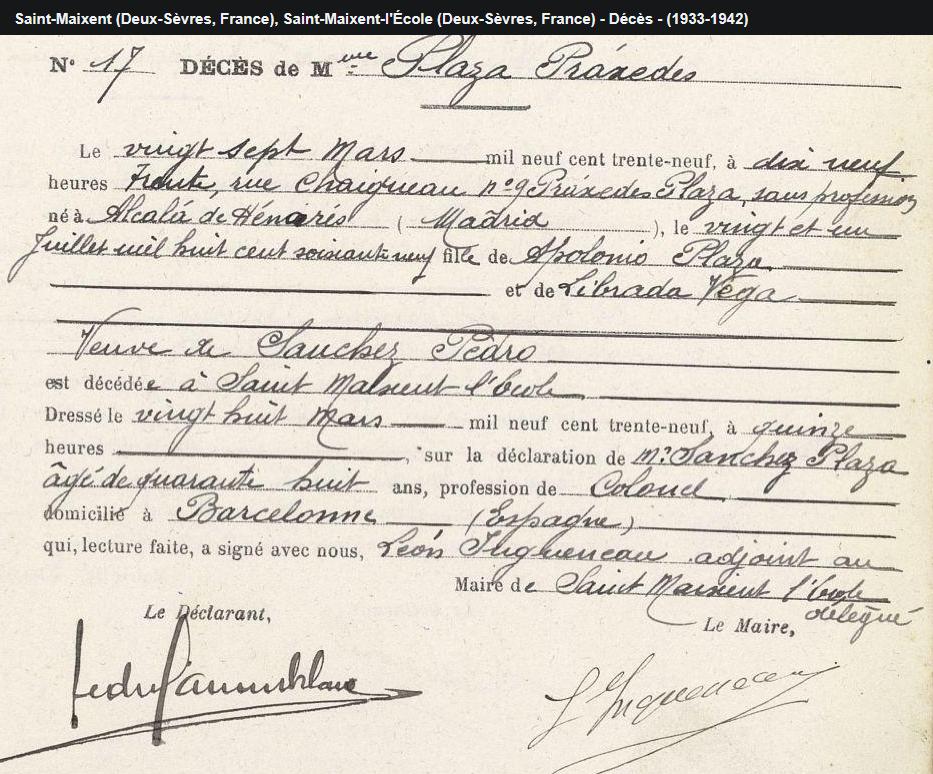 Saint-Maixent (Deux-Sèvres, France), Saint-Maixent-l'École (Deux-Sèvres, France) - Décès - (1933-1942)
N° 17 DÉCÈS de Mme Plaza Práxedes
Le vingt sept Mars mil neuf cent trente-neuf, à dix neuf
heures trente, rue Chaigneau n°9 Práxedes Plaza, sans profession
né à Alcalá de Hénarés (Madrid), le vingt et un
Juillet mil huit cent soixante neuf fille de Apolonio Plaza
et de Librada Véga
Veuve de Sanchez Pédro
est décédée à Saint Maixent l'école
Dressé le vingt huit Mars mil neuf cent trente-neuf, à quinze
heures, sur la déclaration de Mr Sanchez Plaza
âgé de quarante huit ans, profession de Colonel
domicilié à Barcelonne (Espagne)
qui, lecture faite, a signé avec nous, Léon adjoint au
Maire de Saint Maixent l'école
délégué
Le Déclarant, Le Maire,